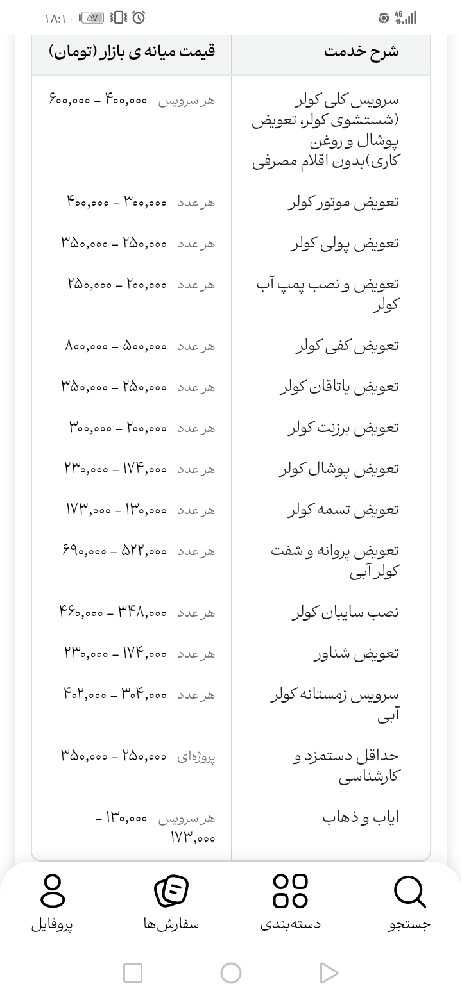 ۱۸:۱۰
۸۷
4G
شرح خدمت قیمت میانه ی بازار (تومان)
سرویس کلی کولر هر سرویس ۴۰۰,۰۰۰ – ۶۰۰,۰۰۰
(شستشوی کولر، تعویض
پوشال و روغن
کاری)بدون اقلام مصرفی
تعویض موتور کولر هر عدد ۳۰۰,۰۰۰ – ۴۰۰,۰۰۰
تعویض پولی کولر هر عدد ۲۵۰,۰۰۰ – ۳۵۰,۰۰۰
تعویض و نصب پمپ آب هر عدد ۲۰۰,۰۰۰ – ۲۵۰,۰۰۰
کولر
تعویض کفی کولر هر عدد ۵۰۰,۰۰۰ – ۸۰۰,۰۰۰
تعویض یاتاقان کولر هر عدد ۲۵۰,۰۰۰ – ۳۵۰,۰۰۰
تعویض برزنت کولر هر عدد ۲۰۰,۰۰۰ – ۳۰۰,۰۰۰
تعویض پوشال کولر هر عدد ۱۷۴,۰۰۰ – ۲۳۰,۰۰۰
تعویض تسمه کولر هر عدد ۱۳۰,۰۰۰ – ۱۷۳,۰۰۰
تعویض پروانه و شفت هر عدد ۵۲۲,۰۰۰ – ۶۹۰,۰۰۰
کولر آبی
نصب سایبان کولر هر عدد ۳۴۸,۰۰۰ – ۴۶۰,۰۰۰
تعویض شناور هر عدد ۱۷۴,۰۰۰ – ۲۳۰,۰۰۰
سرویس زمستانه کولر هر عدد ۳۰۴,۰۰۰ – ۴۰۲,۰۰۰
آبی
حداقل دستمزد و پروژه‌ای ۲۵۰,۰۰۰ – ۳۵۰,۰۰۰
کارشناسی
ایاب و ذهاب هر سرویس ۱۳۰,۰۰۰ –
۱۷۳,۰۰۰
جستجو دسته‌بندی سفارش‌ها پروفایل